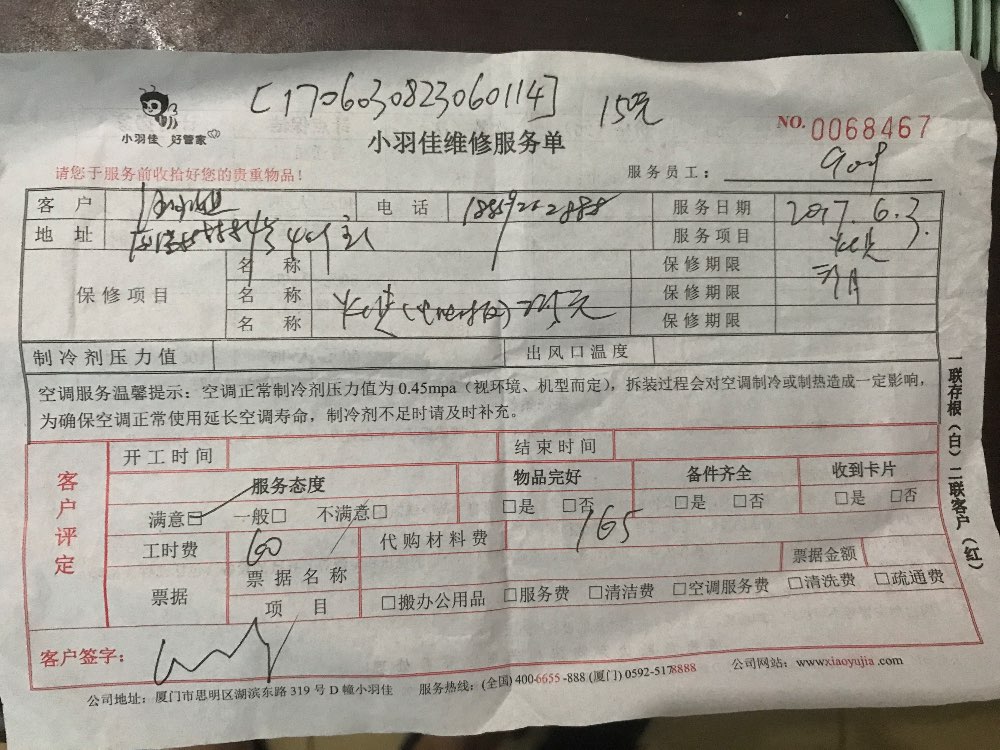 [1706030823060114] 15元
小羽佳 好管家
小羽佳维修服务单
NO. 0068467
请您于服务前收拾好您的贵重物品!
服务员工:
客户 电话 服务日期 2017.6.3.
地址 服务项目
保修项目 名称 保修期限
名称 225元 保修期限
名称 保修期限
制冷剂压力值 出风口温度
空调服务温馨提示:空调正常制冷剂压力值为0.45mpa(视环境、机型而定),拆装过程会对空调制冷或制热造成一定影响,
为确保空调正常使用延长空调寿命,制冷剂不足时请及时补充。
一联存根(白)二联客户(红)
客户评定
开工时间 结束时间
服务态度 物品完好 备件齐全 收到卡片
满意□ 一般□ 不满意□ □是 □否 □是 □否 □是 □否
工时费 60 代购材料费 165
票据 票据名称 票据金额
项目 □搬办公用品 □服务费 □清洁费 □空调服务费 □清洗费 □疏通费
客户签字:
公司地址:厦门市思明区湖滨东路319号D幢小羽佳 服务热线:(全国)400-6655-888 (厦门)0592-5178888 公司网站:www.xiaoyujia.com